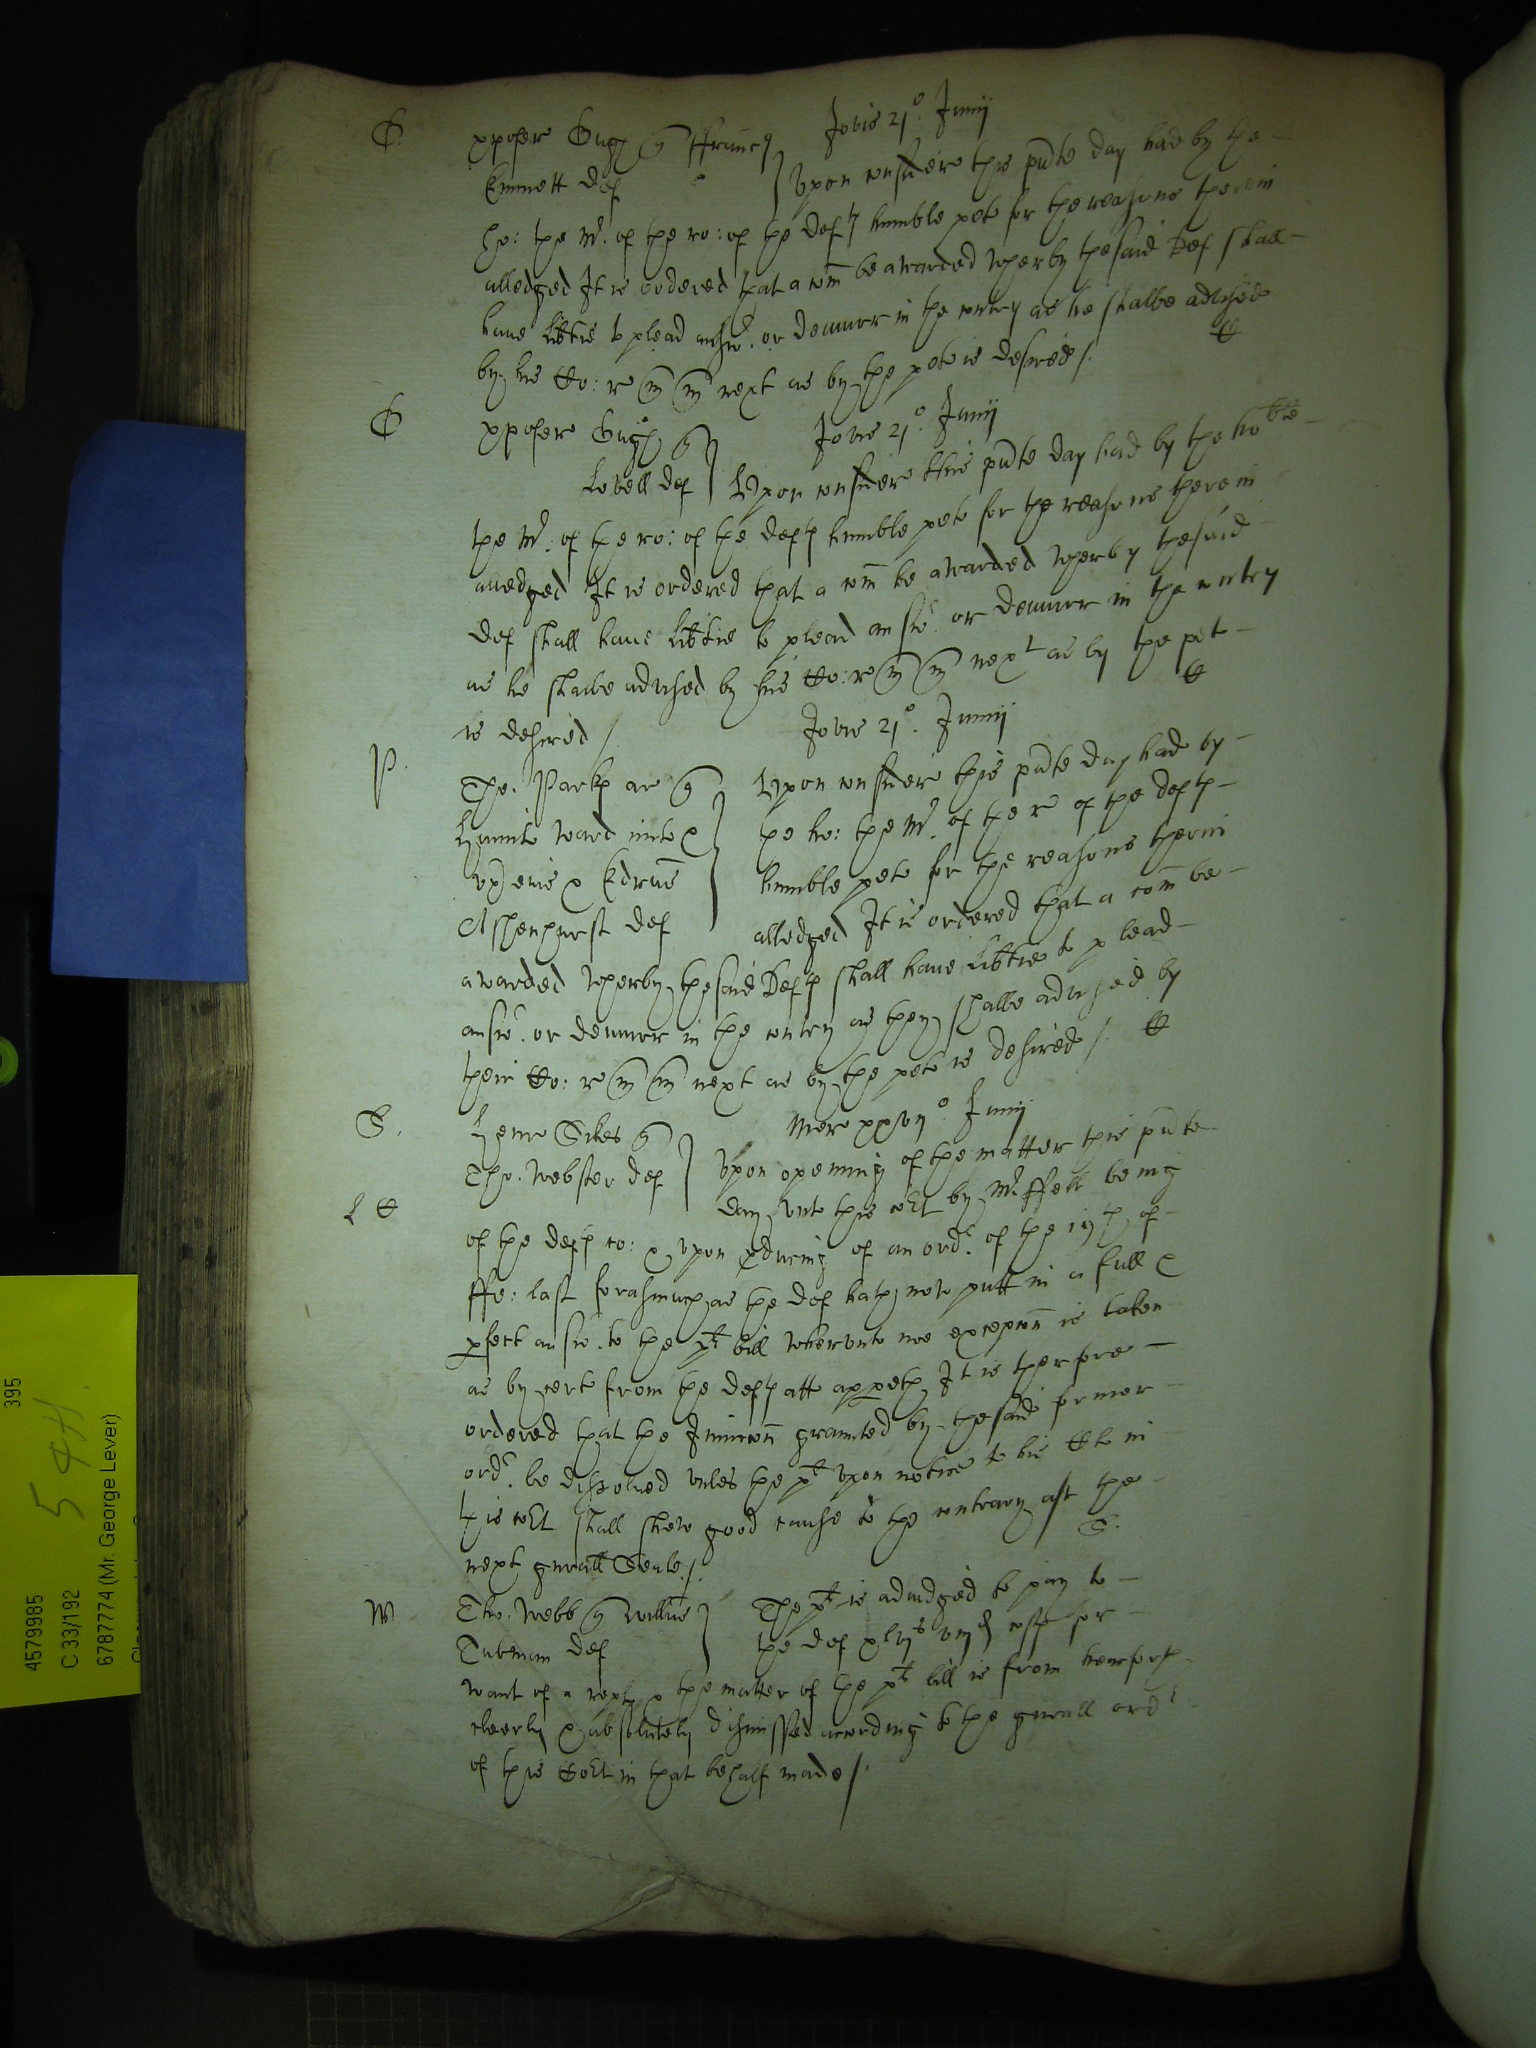 Jovis 21° Junij
G xpofer Gugh q ffrancs
Emmett def } Upon consideracon this pnte day had by the
ho: the Mr. of the ro: of the defts humble peto for the reasons therein
alledged It is ordered that a com be awarded wherby the said Def shall
have libtie to plead answ. or demurr in the contry as he shalbe advised
by his Co: re in next as by the peto is desired /.
Jovis 21° Junij
G xpofer Gugh q
Lovell def } Upon consideracon this pnte day had by the hoble
the Mr. of the ro: of the defts humble peto for the reasons therein
alledged It is ordered that a com be awarded wherby the said
def shall have libtie to plead answ. or demurr in the contry
as he shalbe advised by his Co: re in next as by the pet
is desired /
Jovis 21° Junij
P. Tho. Parks ar q } Upon consideracon this pnte day had by
ward the ho: the Mr. of the r of the defts
humble peto for the reasons therin
Ashenhurst def alledged It is ordered that a com be
awarded wherby the said Defts shall have libtie to plead
answ. or demurr in the contry as they shalbe advised by
their Co: re in next as by the peto is desired /.
Mer xxvij° Junij
S. Henr Sikes q
Tho. Webster def } Upon opening of the matter this pnte
day unto this cort by Mr ffell being
of the defts co: & upon pducing of an ordr. of the of
ffe: last forasmuch as the def hath now putt in a full &
pfect answ. to the plt bill wherunto noe excepcon is taken
as by cert from the defts att appeth It is therfore
ordered that the Iniuncon graunted by the said former
ordr. be dissolved unles the plt upon notice to his Clo in
this cort shall shew good cause to the contrary att the
next gnrall Seale /.
S.
W Tho. Webb q Willm } The plt is adiudged to pay to
Tubman def the def xlvjs viijd costs for
want of a reply & the matter of the plt bill is from hencforth
cleerly & absolutely dismissed according to the gnrall ordr
of this Cort in that behalf made /.
395
544
4579985
C 33/192
6787774 (Mr. George Lever)